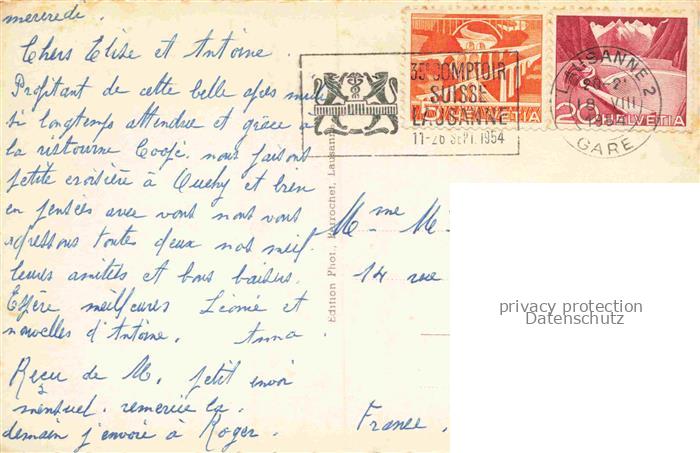 mercredi.
Chers Elise et Antoine
Profitant de cette belle après midi
si longtemps attendue et grâce à
la ristourne Coopé. nous faisons
petite croisière à Ouchy et bien
en pensées avec vous nous vous
adressons toutes deux nos meil
leures amitiés et bons baisers.
Espère meilleures Léonie et
nouvelles d'Antoine. Anna
Reçu de M. petit envoi
mensuel. remercie la.
demain j'envoie à Roger.
Edition Phot. Perrochet, Lausanne
35e COMPTOIR
SUISSE
LAUSANNE
11-26 SEPT. 1954
5 HELVETIA
20 HELVETIA
LAUSANNE 2
18 VIII
1954
GARE
Mme M
14 rue
France.
privacy protection
Datenschutz